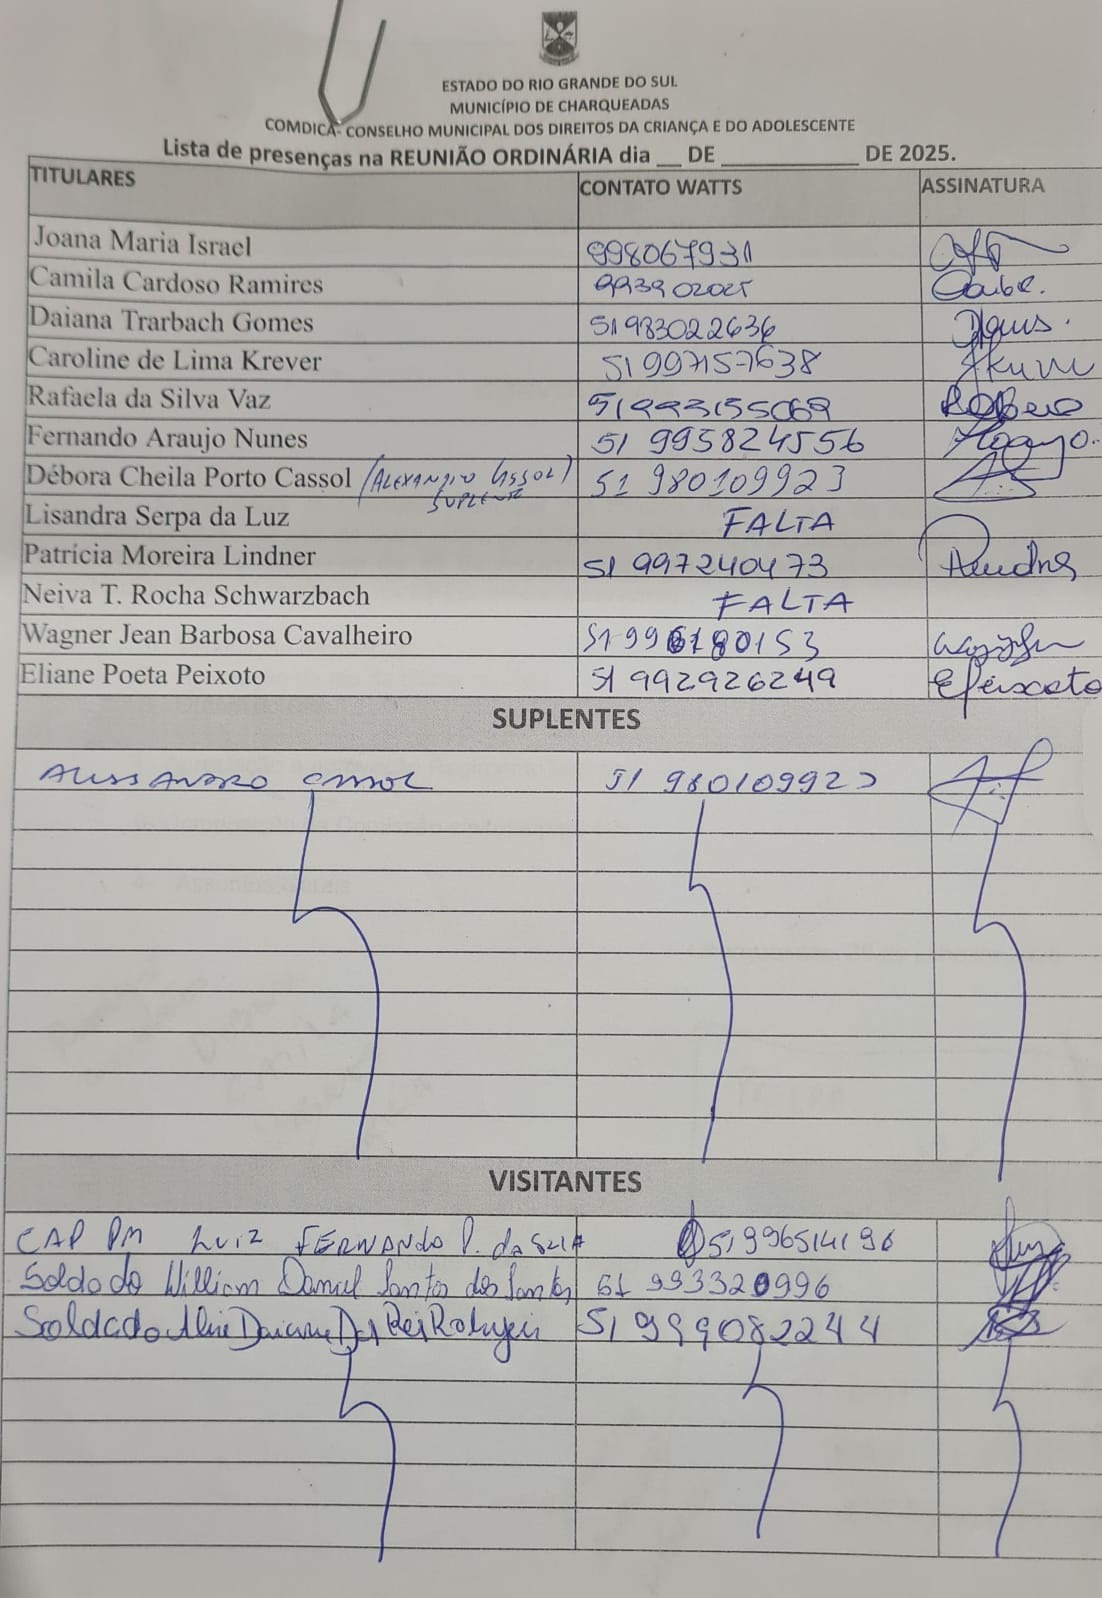 ESTADO DO RIO GRANDE DO SUL
MUNICÍPIO DE CHARQUEADAS
COMDICA- CONSELHO MUNICIPAL DOS DIREITOS DA CRIANÇA E DO ADOLESCENTE
Lista de presenças na REUNIÃO ORDINÁRIA dia __ DE ____________ DE 2025.
TITULARES CONTATO WATTS ASSINATURA
Joana Maria Israel 998067931
Camila Cardoso Ramires 993902025
Daiana Trarbach Gomes 51983022636
Caroline de Lima Krever 51997157638
Rafaela da Silva Vaz 51993155069
Fernando Araujo Nunes 51 995824556
Débora Cheila Porto Cassol (ALEXANDRO CASSOL) 51 980109923
SUPLENTE
Lisandra Serpa da Luz FALTA
Patrícia Moreira Lindner 51 997240473
Neiva T. Rocha Schwarzbach FALTA
Wagner Jean Barbosa Cavalheiro 51 996180153
Eliane Poeta Peixoto 51 992926249 EPeixoto
SUPLENTES
ALESSANDRO CASSOL 51 980109923
VISITANTES
CAP PM LUIZ FERNANDO P. da SILVA 51996514196
Soldado William Daniel Santos dos Santos 51 993320996
Soldado Aline Daiane Dal Rei 51 999082244